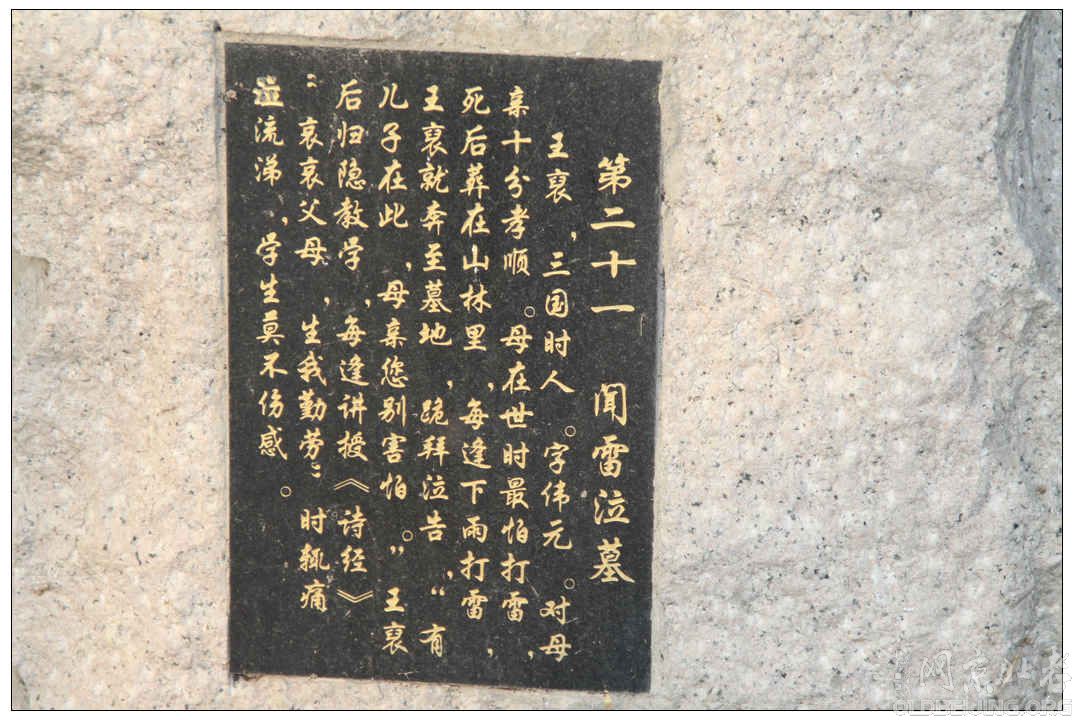 第二十一 闻雷泣墓
王裒，三国时人。字伟元。对母
亲十分孝顺。母在世时最怕打雷，
死后葬在山林里，每逢下雨打雷，
王裒就奔至墓地，跪拜泣告，“有
儿子在此，母亲您别害怕。”王裒
后归隐教学，每逢讲授《诗经》
“哀哀父母，生我勤劳”时辄痛
泣流涕，学生莫不伤感。
网京北老
OLDBEIJING.ORG